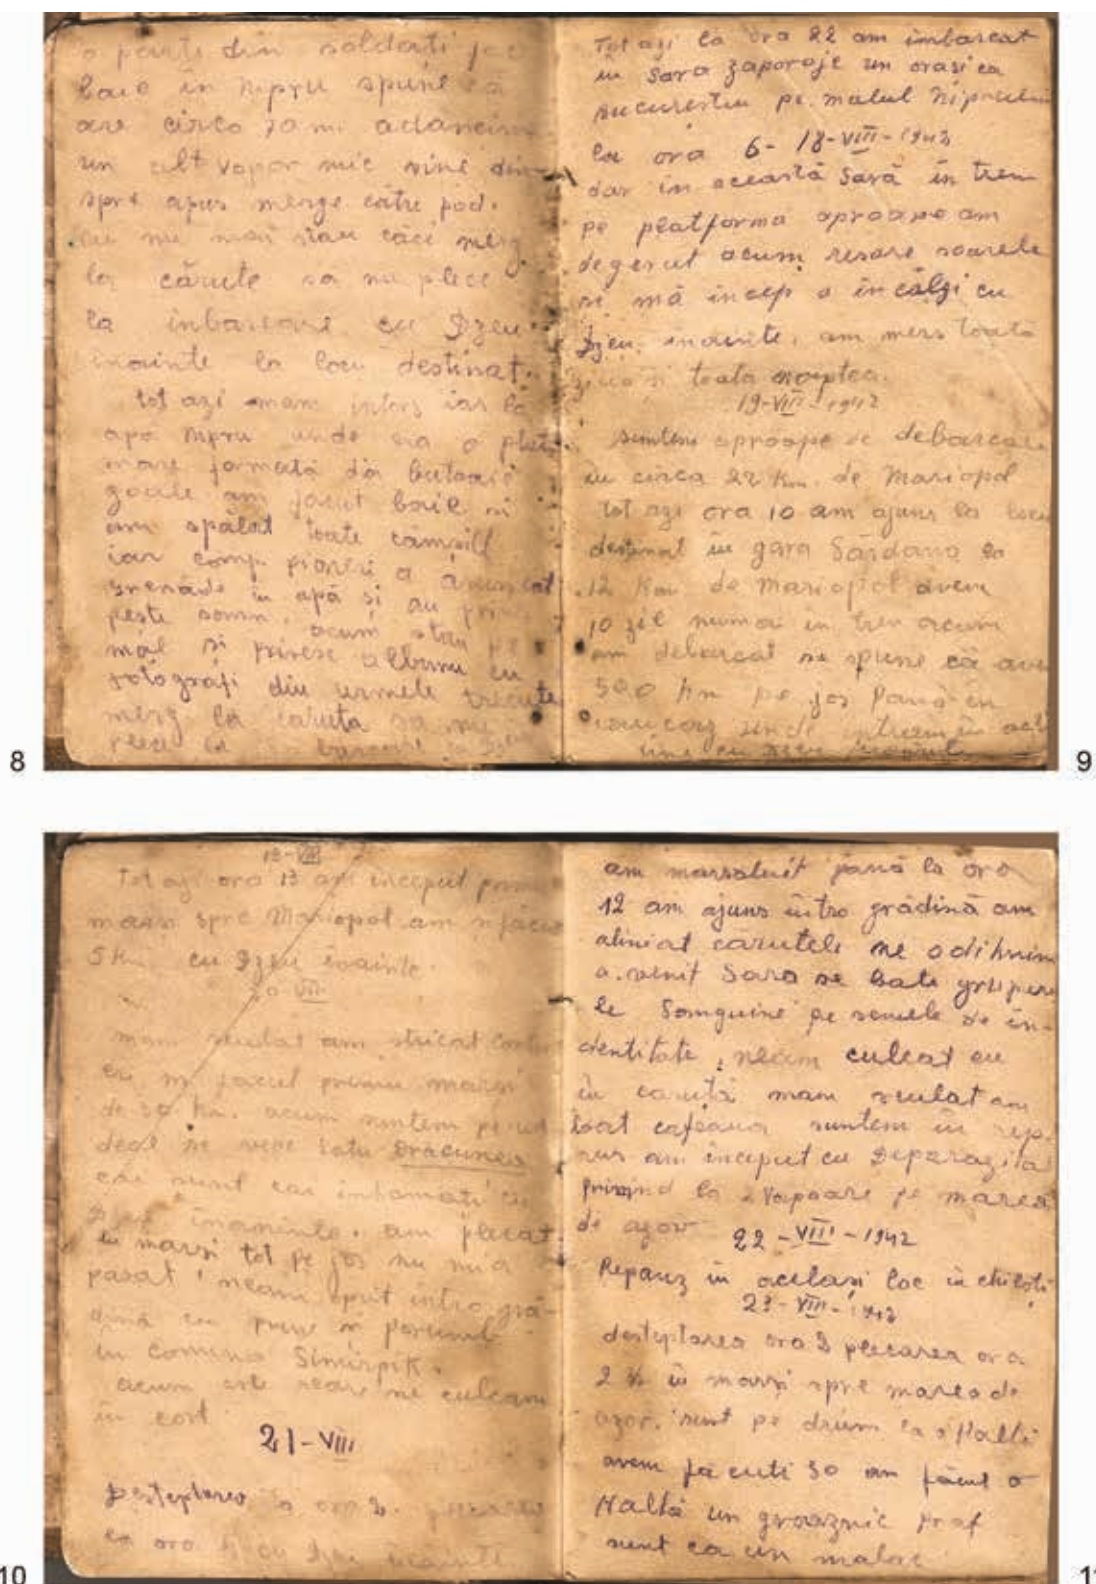 o parte din soldati fac
baie în Nipru spune că
are circa 70 m. adancime
un alt vapor mic vine din
spre apus merge către pod.
nu mai stau căci merg
la căruțe sa nu plece
la inbarcare cu Dzeu
inainte la locu destinat.
tot azi mam intors iar la
apa Nipru unde era o plută
mare formată din butoaie
goale am facut baie si
am spălat toate
iar comp. a aruncat
grenade in apă și au prins
peste somn, acum stau pe
mal si privesc albumu cu
fotografi din urmele trecute
merg la caruta sa nu
plece la
8
Tot azi la ora 22 am imbarcat
in Gara Zaporoje un oras ca
Bucurestiu pe malul Niprului
la ora 6- 18-VIII-1942
dar in această Sară in tren
pe platforma aproape am
degerat acum resare soarele
si mă incep a incălzi cu
Dzeu inainte, am mers toata
ziua si toata noaptea.
19-VIII-1942
suntem aproape de debarcare
cu circa 22 Km. de Mariopol
tot azi ora 10 am ajuns la locu
destinat in gara Sărdana la
12 Km de Mariopol avem
10 zile numai in tren acum
am debarcat se spune că avem
500 km pe jos Pană in
caucaz unde intram in acti
une cu
9
19-VIII
Tot azi ora 13 am inceput primu
mars spre Mariopol am facut
5 Km cu Dzeu inainte.
20-VIII
mam sculat am stricat cortu
si facut primu marsi
de 30 Km. acum suntem pe un
deal se vede satu Dracunea
cai sunt cai inhamați cu
Dzeu inaninte. am plecat
in marsi tot pe jos nu mia
pasat neam oprit intro gră-
dină cu prune si porumb
in comuna Simirpik.
acum este seare ne culcam
in cort
21-VIII
Desteptarea la ora 2. plecarea
la ora cu Dzeu inainte
10
am marsaluit pană la ora
12 am ajuns intro grădină am
aliniat carutele ne odihnim
a venit Sara se bate grupere
le Sanguine pe semele de in-
dentitate, neam culcat eu
in caruță mam sculat am
luat cafeaua suntem in rep.
aus am inceput cu Deparazita
privind la 2 Vapoare pe marea
de azov
22-VIII-1942
Repauz in acelasi loc in chiloti
23-VIII-1942
desteptarea ora 2 plecarea ora
2 ½ in marsi spre marea de
azov. sunt pe drum la o Halta
avem făcuti 30 am făcut o
Haltă un groaznic praf
sunt ca un malac